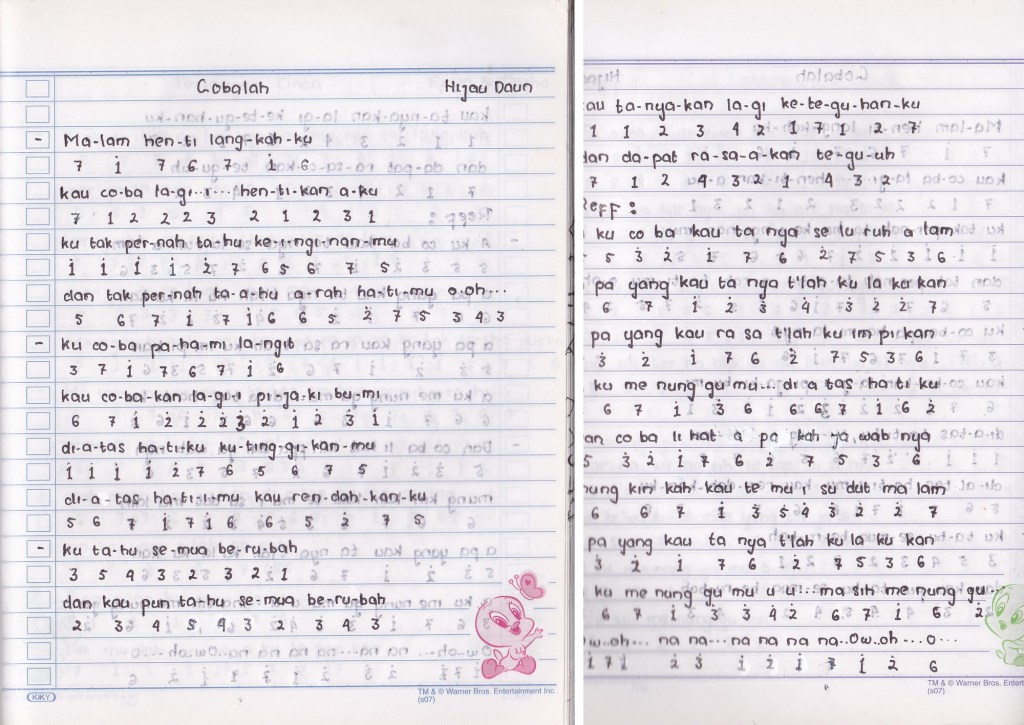 Cobalah Hijau Daun
- Ma-lam hen-ti lang-kah-ku
7 i 7 6 7 i 6
kau co-ba la-gi..i... hen-ti-kan a-ku
7 1 2 2 2 3 2 1 2 3 1
ku tak per-nah ta-hu ke-i-ngi-nan-mu
i i i i 2 7 6 5 6 7 5
dan tak per-nah ta-a-hu a-rah ha-ti-mu o.oh...
5 6 7 i 7 i 6 6 5 2 7 5 3 4 3
- ku co-ba pa-ha-mi la-ngit
3 7 i 7 6 7 i 6
kau co-ba-kan la-gi-i pi-ja-ki bu-mi
6 7 i 2 i 2 2 3 2 i 2 3 i
di-a-tas ha-ti-ku ku-ting-gi-kan-mu
i i i i i 2 7 6 5 6 7 5
di-a-tas ha-ti-i-mu kau ren-dah-kan-ku
5 6 7 i 7 i 6 6 5 2 7 5
- ku ta-hu se-mua be-ru-bah
3 5 4 3 3 2 3 2 1
dan kau pun ta-hu se-mua be-ru-bah
2 3 4 5 4 3 2 3 4 3
KIKY
TM & © Warner Bros. Entertainment Inc.
(s07)
au ta-nya-kan la-gi ke-te-gu-han-ku
1 1 2 3 4 2 1 7 1 2 7
dan da-pat ra-sa-a-kan te-gu-uh
7 1 2 4 3 2 1 4 3 2
Reff :
ku co ba kau ta nya se lu ruh a lam
5 3 2 i 7 6 2 7 5 3 6
pa yang kau ta nya t'lah ku la ku kan
6 7 i 2 3 4 3 2 2 7
pa yang kau ra sa t'lah ku im pi kan
3 2 i 7 6 2 7 5 3 6
ku me nung gu mu... di a tas ha ti ku
6 7 i 3 6 i 6 6 7 i 6 2
an co ba li hat a pa kah ja wab nya
5 3 2 i 7 6 2 7 5 3 6
mung kin kah kau te mu i su dut ma lam
6 6 7 i 3 5 4 3 2 2 7
pa yang kau ta nya t'lah ku la ku kan
3 2 i 7 6 i 2 7 5 3 6
ku me nung gu mu u u... ma sih me nung gu...
6 7 i 3 3 4 6 7 i 6 2
Ow..oh... na na... na na na na..Ow..oh...o...
i 7 i 2 3 i 2 i 7 i 2 6
TM & © Warner Bros. Entertainment
(s07)